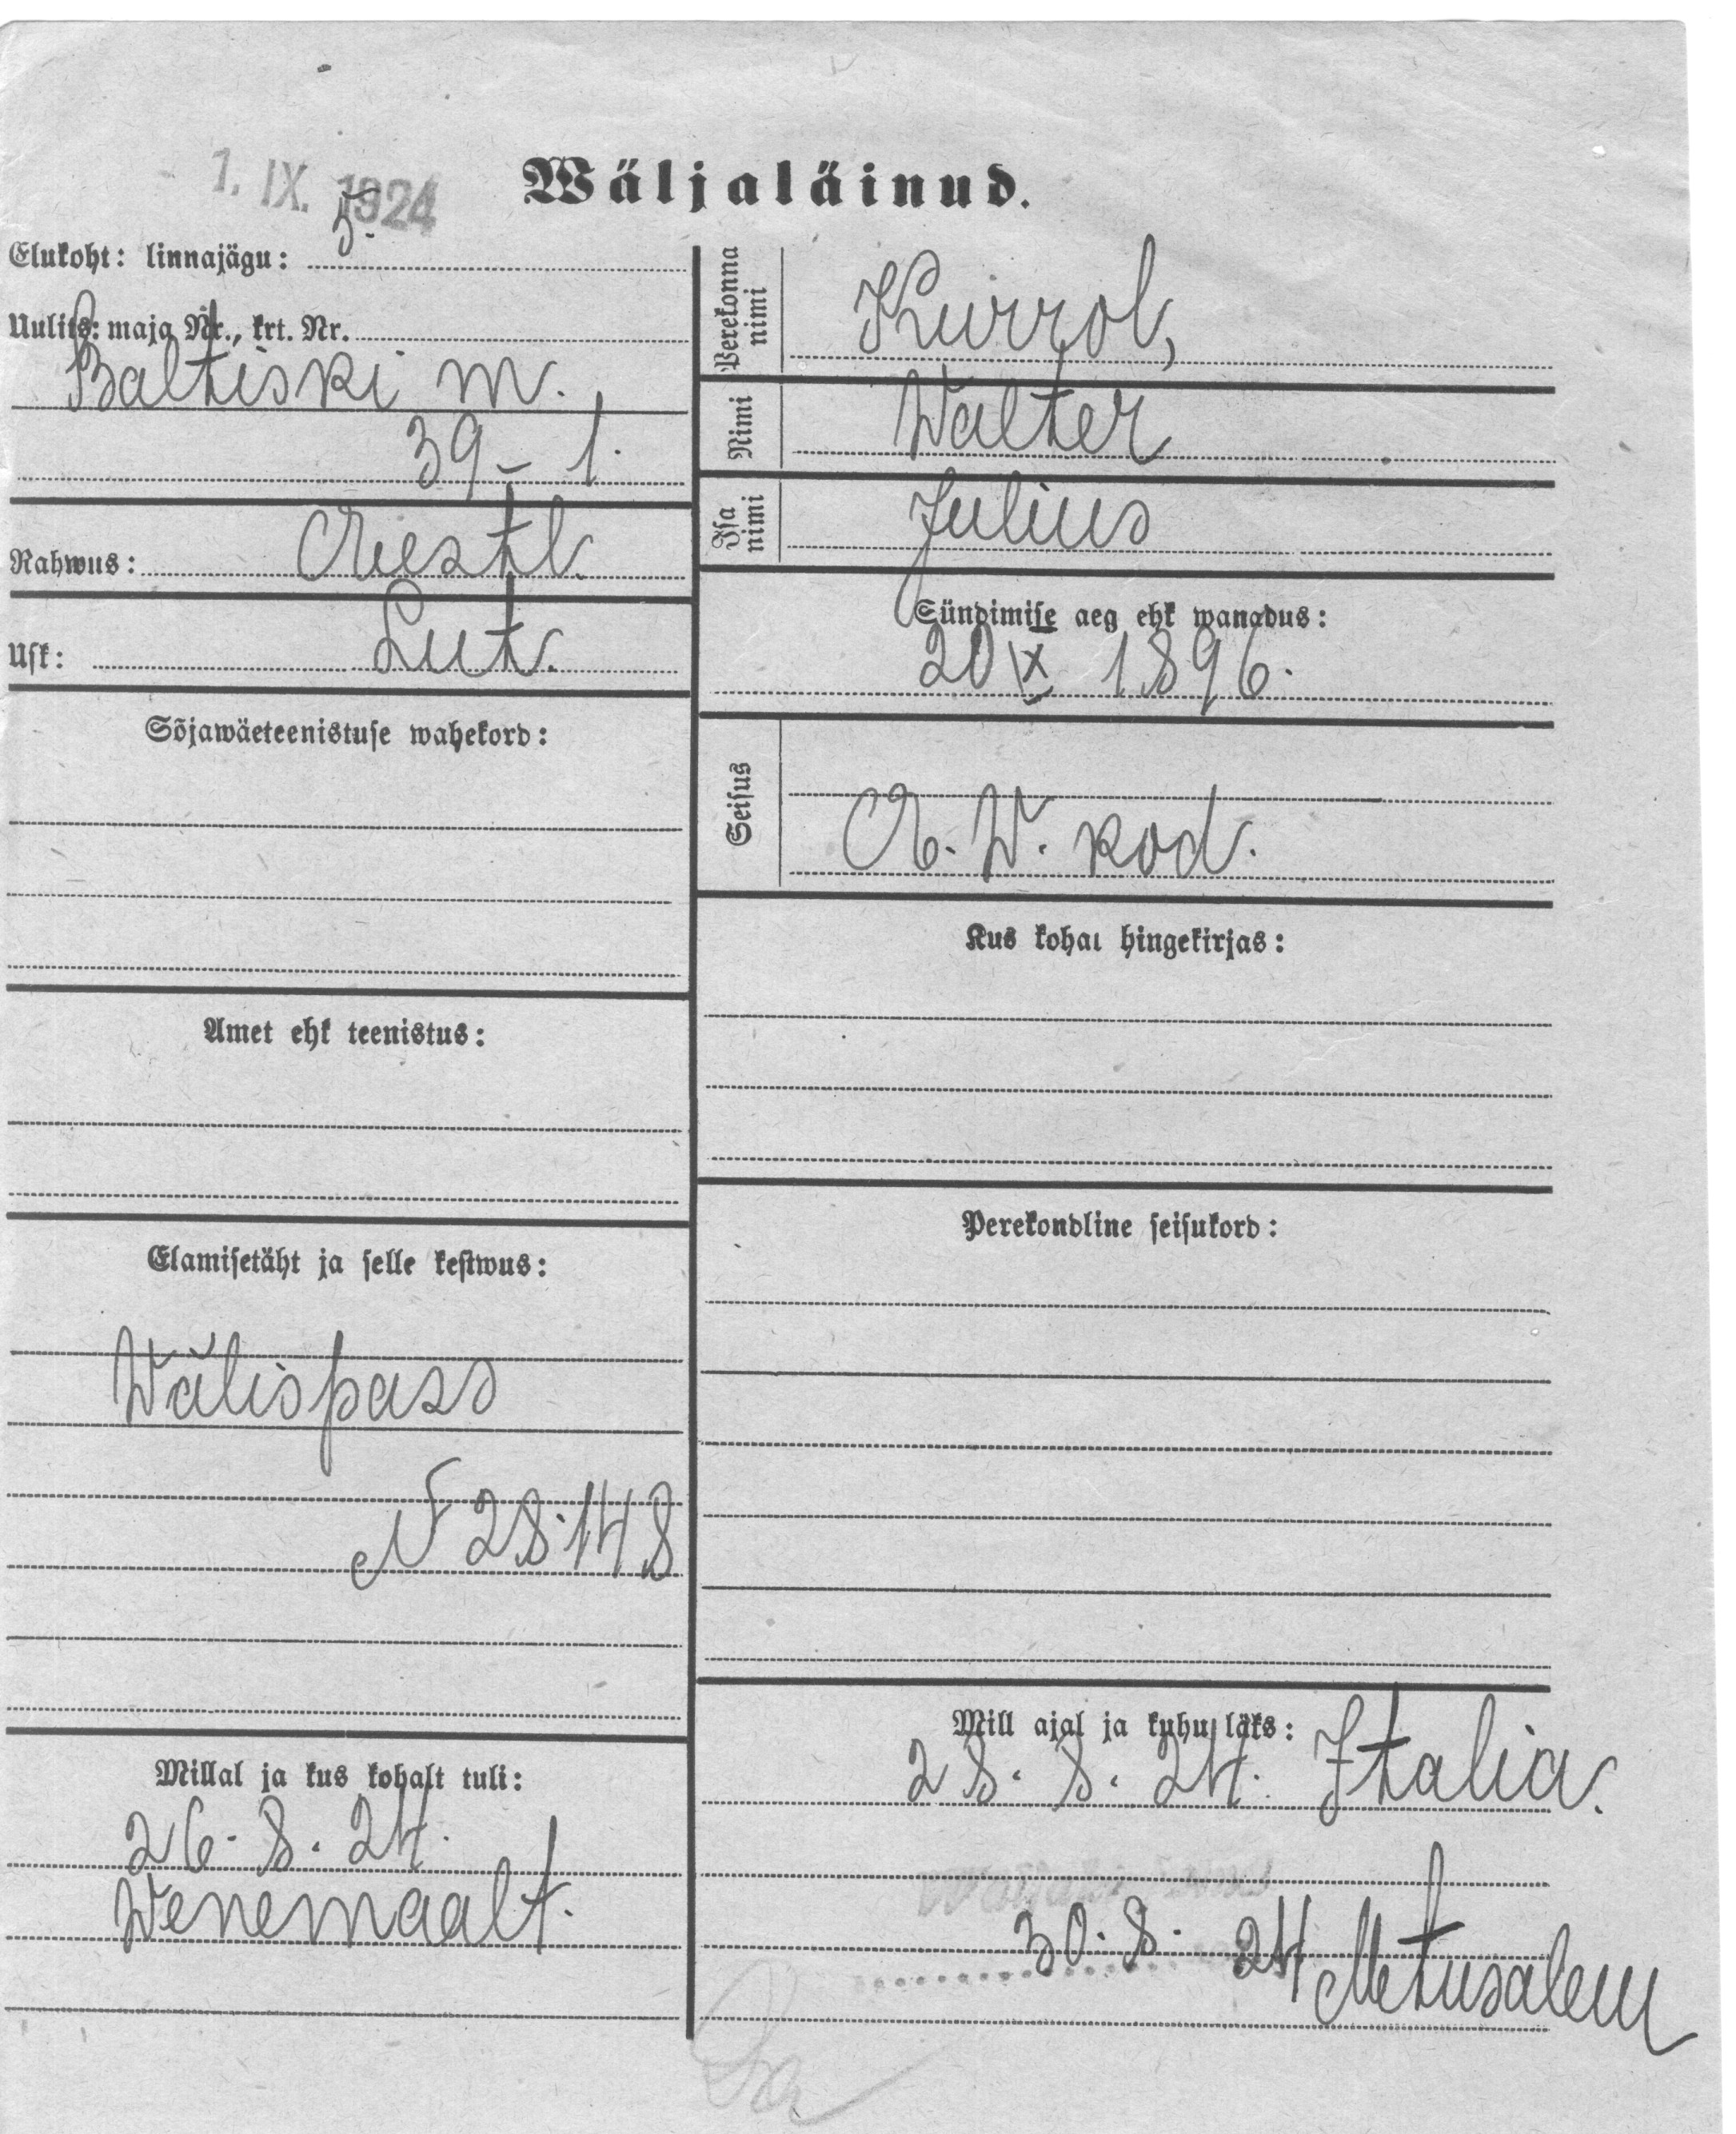 1. IX. 1924
Wäljaläinud.
Elukoht: linnajägu: 5.
Uulits: maja Nr., krt. Nr.
Baltiski m.
39 – 1.
Rahwus: Eestl.
Usk: Lut.
Sõjawäeteenistuse wahekord:
Amet ehk teenistus:
Elamisetäht ja selle kestwus:
Wälispass
N 28148
Millal ja kus kohalt tuli:
26. 8. 24.
Wenemaalt.
Perekonna nimi
Kurrol,
Nimi
Walter
Isa nimi
Julius
Sündimise aeg ehk wanadus:
20 IX 1896.
Seisus
E. W. kod.
Kus kohal hingekirjas:
Perekondline seisukord:
Mill ajal ja kuhu läks:
28. 8. 24. Italia.
30. 8. 24 Metusalem